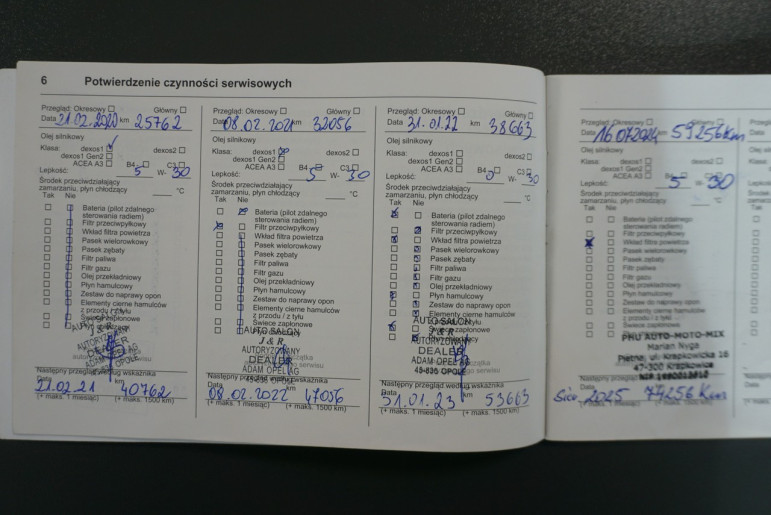 6 Potwierdzenie czynności serwisowych
Przegląd: Okresowy Główny
Data 21.02.2020 km 25762
Olej silnikowy
Klasa: dexos1 dexos2
dexos1 Gen2
ACEA A3 B4 C3
Lepkość: 5 W- 30
Środek przeciwdziałający
zamarzaniu, płyn chłodzący °C
Tak Nie
Bateria (pilot zdalnego
sterowania radiem)
Filtr przeciwpyłkowy
Wkład filtra powietrza
Pasek wielorowkowy
Pasek zębaty
Filtr paliwa
Filtr gazu
Olej przekładniowy
Płyn hamulcowy
Zestaw do naprawy opon
Elementy cierne hamulców
z przodu / z tyłu
Świece zapłonowe
J & R
AUTORYZOWANY
DEALER
ADAM OPEL AG
Następny przegląd według wskaźnika
21.02.21 km 40762
(+ maks. 1 miesiąc) (+ maks. 1500 km)
Przegląd: Okresowy Główny
Data 08.02.2021 km 32056
Olej silnikowy
Klasa: dexos1 dexos2
dexos1 Gen2
ACEA A3 B4 C3
Lepkość: 5 W- 30
Środek przeciwdziałający
zamarzaniu, płyn chłodzący °C
Tak Nie
Bateria (pilot zdalnego
sterowania radiem)
Filtr przeciwpyłkowy
Wkład filtra powietrza
Pasek wielorowkowy
Pasek zębaty
Filtr paliwa
Filtr gazu
Olej przekładniowy
Płyn hamulcowy
Zestaw do naprawy opon
Elementy cierne hamulców
z przodu / z tyłu
Świece zapłonowe
AUTO SALON
J & R
AUTORYZOWANY
DEALER
ADAM OPEL AG
Następny przegląd według wskaźnika
Data 08.02.2022 km 47056
(+ maks. 1 miesiąc) (+ maks. 1500 km)
Przegląd: Okresowy Główny
Data 31.01.22 km 38663
Olej silnikowy
Klasa: dexos1 dexos2
dexos1 Gen2
ACEA A3 B4 C3
Lepkość: 0 W- 30
Środek przeciwdziałający
zamarzaniu, płyn chłodzący °C
Tak Nie
Bateria (pilot zdalnego
sterowania radiem)
Filtr przeciwpyłkowy
Wkład filtra powietrza
Pasek wielorowkowy
Pasek zębaty
Filtr paliwa
Filtr gazu
Olej przekładniowy
Płyn hamulcowy
Zestaw do naprawy opon
Elementy cierne hamulców
z przodu / z tyłu
AUTO SALON
Świece zapłonowe
J & R
AUTORYZOWANY
DEALER
ADAM OPEL AG
45-835 OPOLE
Następny przegląd według wskaźnika
Data 31.01.23 km 53663
(+ maks. 1 miesiąc) (+ maks. 1500 km)
Przegląd: Okresowy Główny
Data 16.07.2024 59256 Km
Olej silnikowy
Klasa: dexos1 dexos2
dexos1 Gen2
ACEA A3 B4 C3
Lepkość: 5 W- 30
Środek przeciwdziałający
zamarzaniu, płyn chłodzący °C
Tak Nie
Bateria (pilot zdalnego
sterowania radiem)
Filtr przeciwpyłkowy
Wkład filtra powietrza
Pasek wielorowkowy
Pasek zębaty
Filtr paliwa
Filtr gazu
Olej przekładniowy
Płyn hamulcowy
Zestaw do naprawy opon
Elementy cierne hamulców
z przodu / z tyłu
Świece zapłonowe
PHU AUTO-MOTO-MIX
Marian Nyga
47-300 Krapkowice
Następny przegląd według wskaźnika
Data 2025 74256 Km
(+ maks. 1 miesiąc) (+ maks. 1500 km)